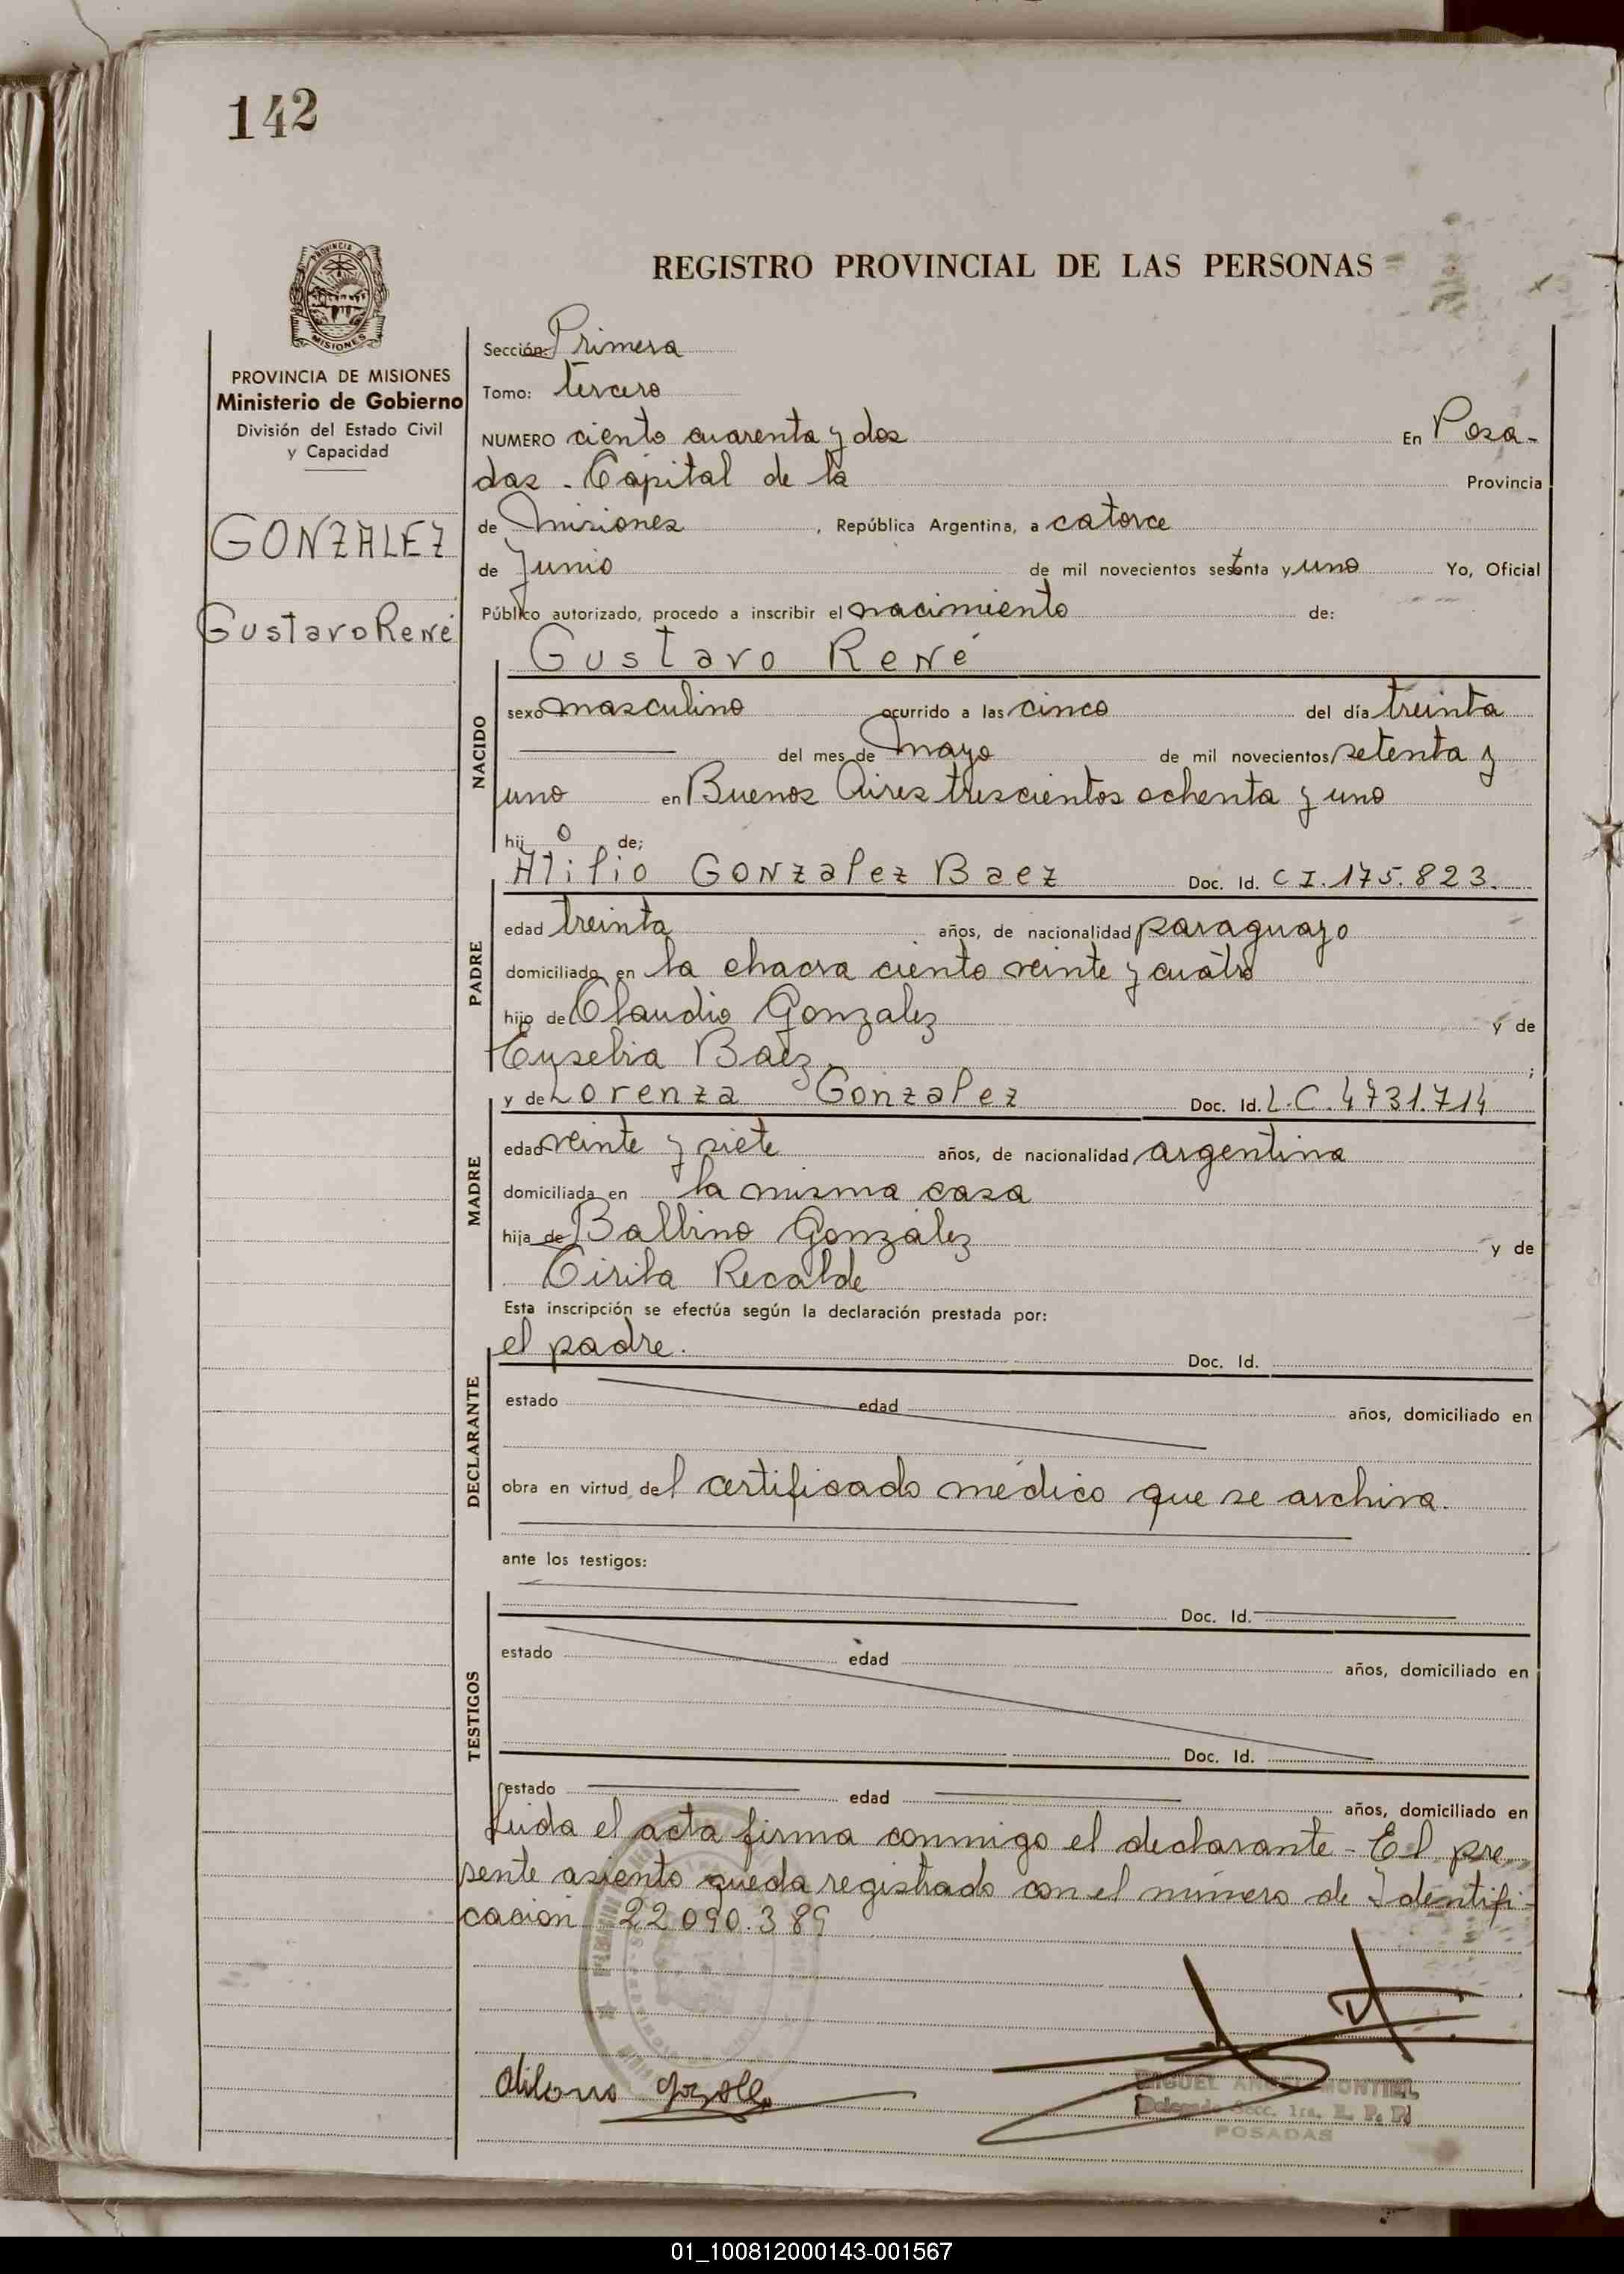 142
PROVINCIA DE
MISIONES
REGISTRO PROVINCIAL DE LAS PERSONAS
PROVINCIA DE MISIONES
Ministerio de Gobierno
División del Estado Civil
y Capacidad
GONZALEZ
Gustavo René
Sección: Primera
Tomo: tercero
NUMERO ciento cuarenta y dos En Posa-
das - Capital de la Provincia
de Misiones, República Argentina, a catorce
de Junio de mil novecientos setenta y uno Yo, Oficial
Público autorizado, procedo a inscribir el nacimiento de:
Gustavo René
NACIDO
sexo masculino ocurrido a las cinco del día treinta
del mes de Mayo de mil novecientos setenta y
uno en Buenos Aires trescientos ochenta y uno
hijo de;
Atilio Gonzalez Baez Doc. Id. C I. 175.823.
PADRE
edad treinta años, de nacionalidad paraguayo
domiciliado en la chacra ciento veinte y cuatro
hijo de Claudio Gonzalez y de
Eusebia Baez ;
y de Lorenza Gonzalez Doc. Id. L.C. 4731.714
MADRE
edad veinte y siete años, de nacionalidad argentina
domiciliada en la misma casa
hija de Balbino González y de
Cirila Recalde
Esta inscripción se efectúa según la declaración prestada por:
el padre. Doc. Id.
DECLARANTE
estado edad años, domiciliado en
obra en virtud del certificado médico que se archiva.
ante los testigos:
Doc. Id.
TESTIGOS
estado edad años, domiciliado en
Doc. Id.
estado edad años, domiciliado en
Leida el acta firma conmigo el declarante - El pre
sente asiento queda registrado con el número de Identifi-
cación 22090.389
MIGUEL ANGEL MONTIEL
Delegado Secc. 1ra. R. P. P.
POSADAS
01_100812000143-001567